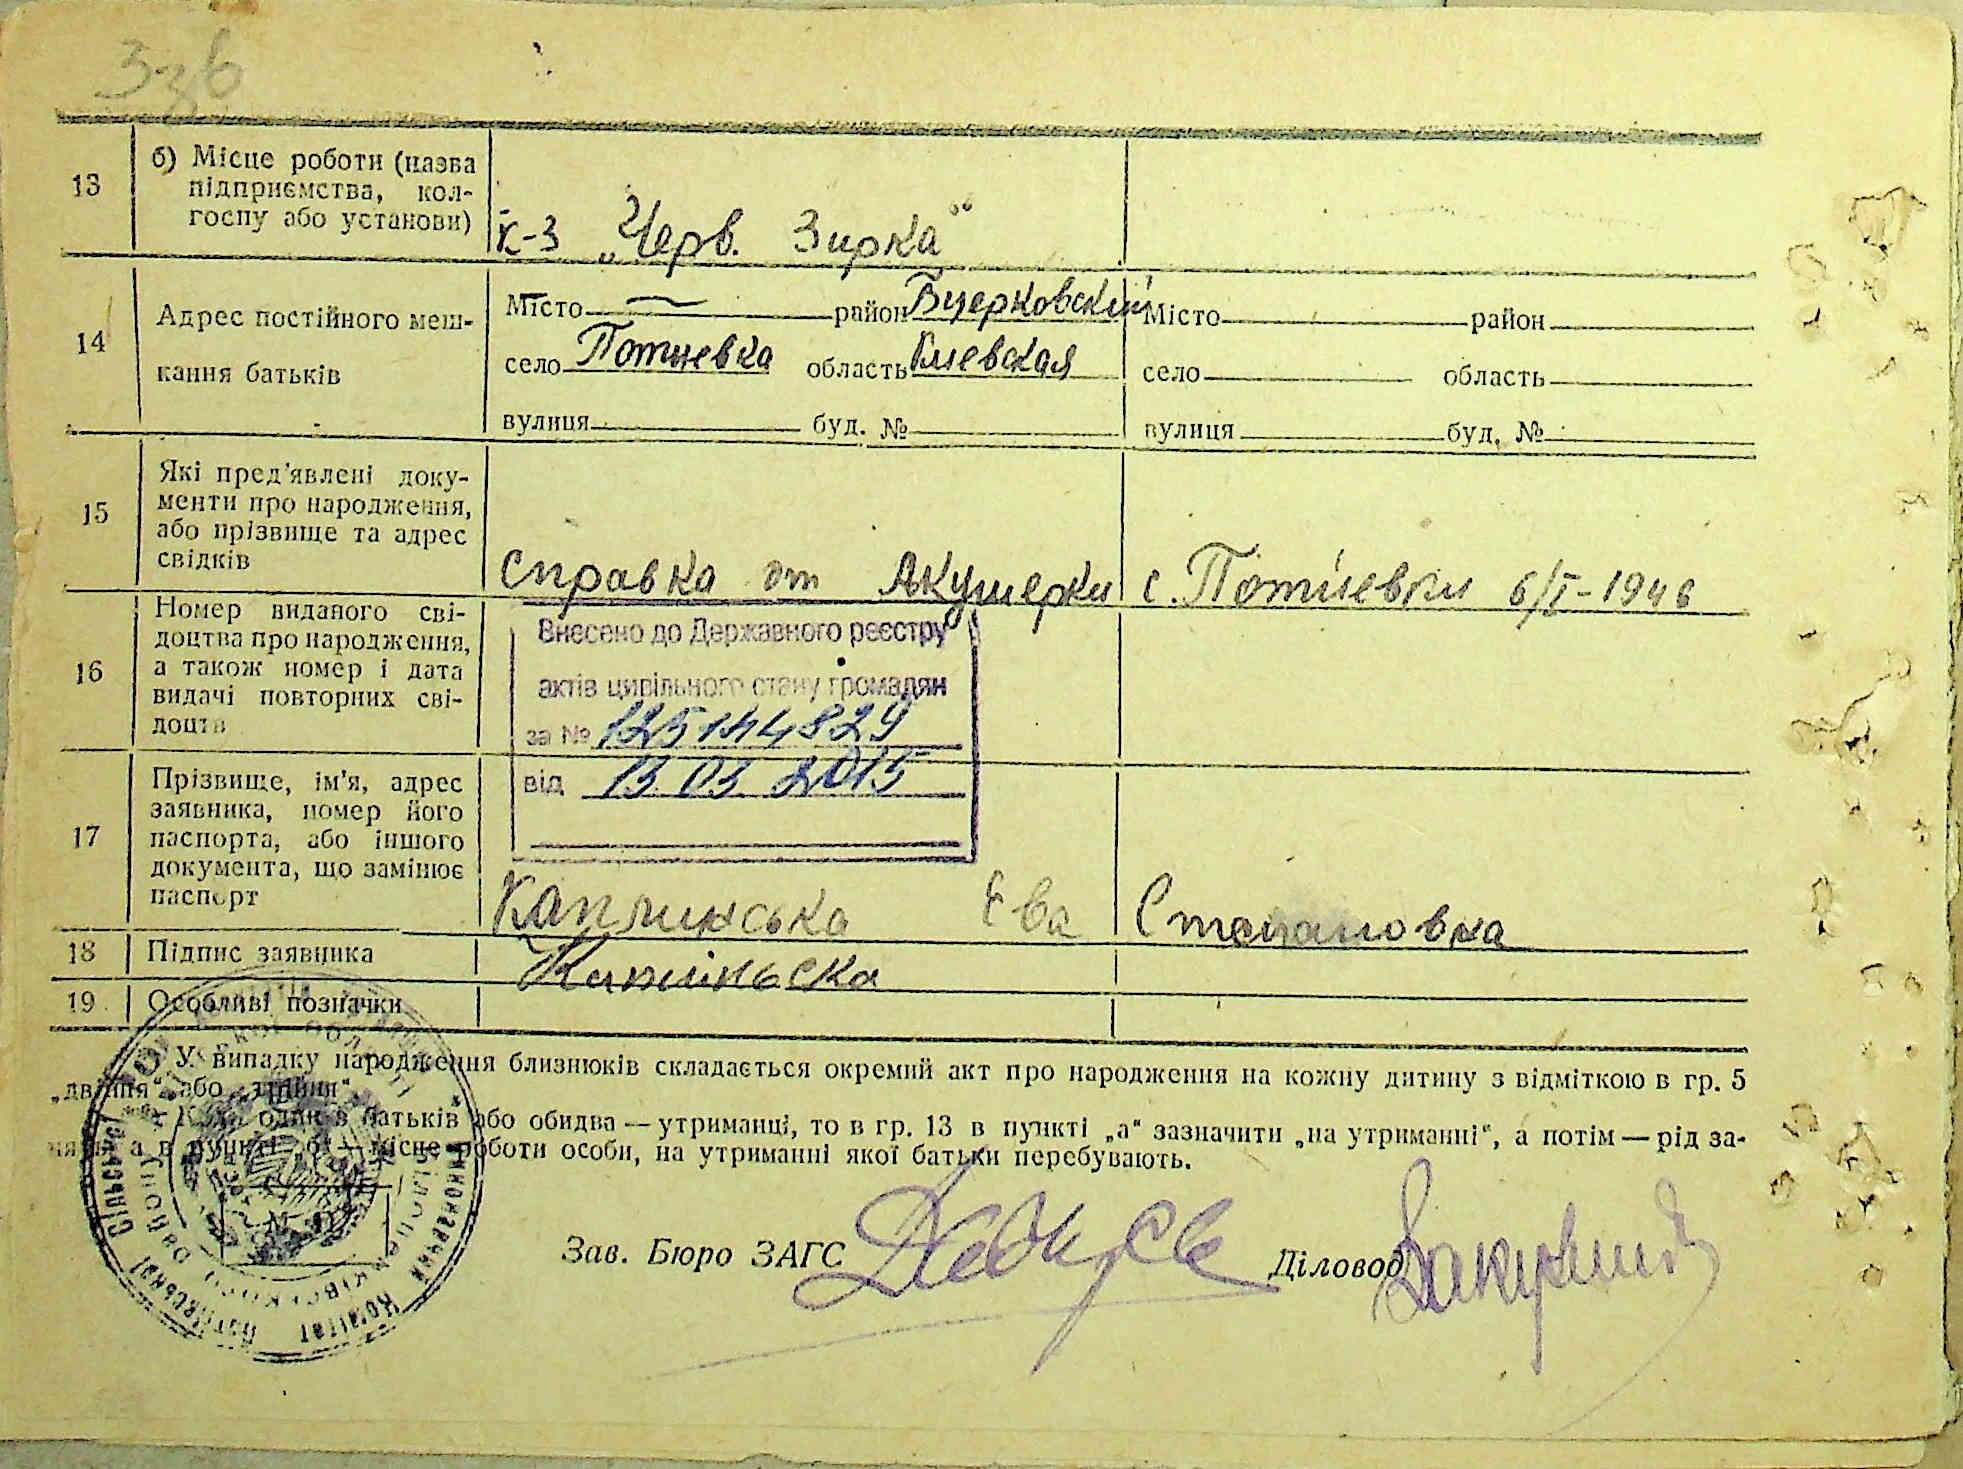 13
б) Місце роботи (назва
підприємства, кол-
госпу або установи)
к-з „Черв. Зирка"
14
Адрес постійного меш-
кання батьків
Місто район Бцерковский
село Потиевка область Киевская
вулиця буд. №
Місто район
село область
вулиця буд. №
15
Які пред'явлені доку-
менти про народження,
або прізвище та адрес
свідків
Справка от Акушерки с. Потиевки 6/I-1946
16
Номер виданого сві-
доцтва про народження,
а також номер і дата
видачі повторних сві-
доцтв
Внесено до Державного реєстру
актів цивільного стану громадян
за № 125144829
від 13.03.2015
17
Прізвище, ім'я, адрес
заявника, номер його
паспорта, або іншого
документа, що замінює
паспорт
Каплинська Ева Степановка
18
Підпис заявника
19
Особливі позначки
У випадку народження близнюків складається окремий акт про народження на кожну дитину з відміткою в гр. 5
„двійня" або „трійня".
Коли один з батьків або обидва — утриманці, то в гр. 13 в пункті „а" зазначити „на утриманні", а потім — рід за-
няття, а в пункті „б" — місце роботи особи, на утриманні якої батьки перебувають.
Зав. Бюро ЗАГС
Діловод